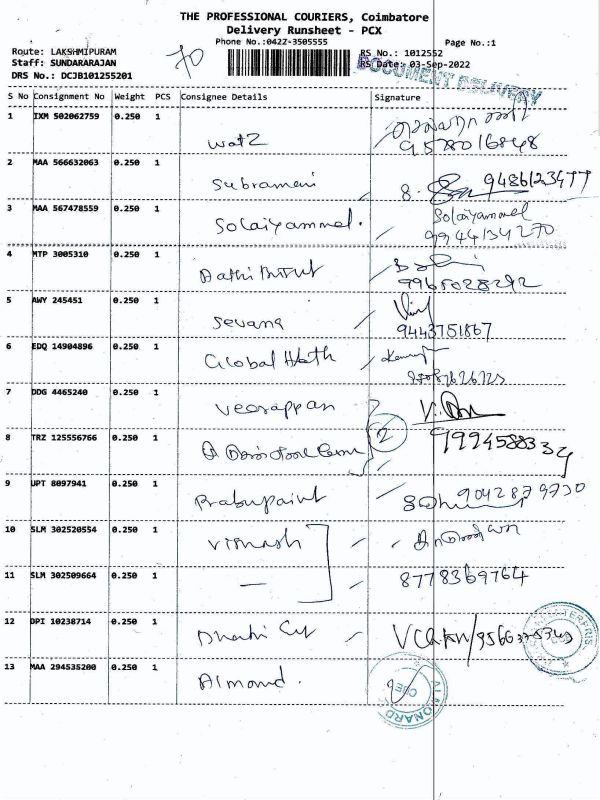 THE PROFESSIONAL COURIERS, Coimbatore
Delivery Runsheet - PCX
Phone No.:0422-3505555
Page No.:1
Route: LAKSHMIPURAM
Staff: SUNDARARAJAN
DRS No.: DCJB101255201
70
RS No.: 1012552
RS Date: 03-Sep-2022
DOCUMENT DELIVERY
S No Consignment No Weight PCS Consignee Details Signature
1 IXM 502062759 0.250 1
9578016848
2 MAA 566632063 0.250 1
Subramani 9486123977
3 MAA 567478559 0.250 1
Solaiyammal. Solaiyammal
9944134270
4 MTP 3005310 0.250 1
9965028292
5 AWY 245451 0.250 1
Sevana
9443751867
6 EDQ 14904896 0.250 1
Global Health
7 DDG 4465240 0.250 1
Veerappan
2
8 TRZ 125556766 0.250 1
9994588334
9 UPT 8097941 0.250 1
Prabupaint 9042879730
10 SLM 302520554 0.250 1
11 SLM 302509664 0.250 1
— 8778369764
12 DPI 10238714 0.250 1
13 MAA 294535200 0.250 1
Almond.